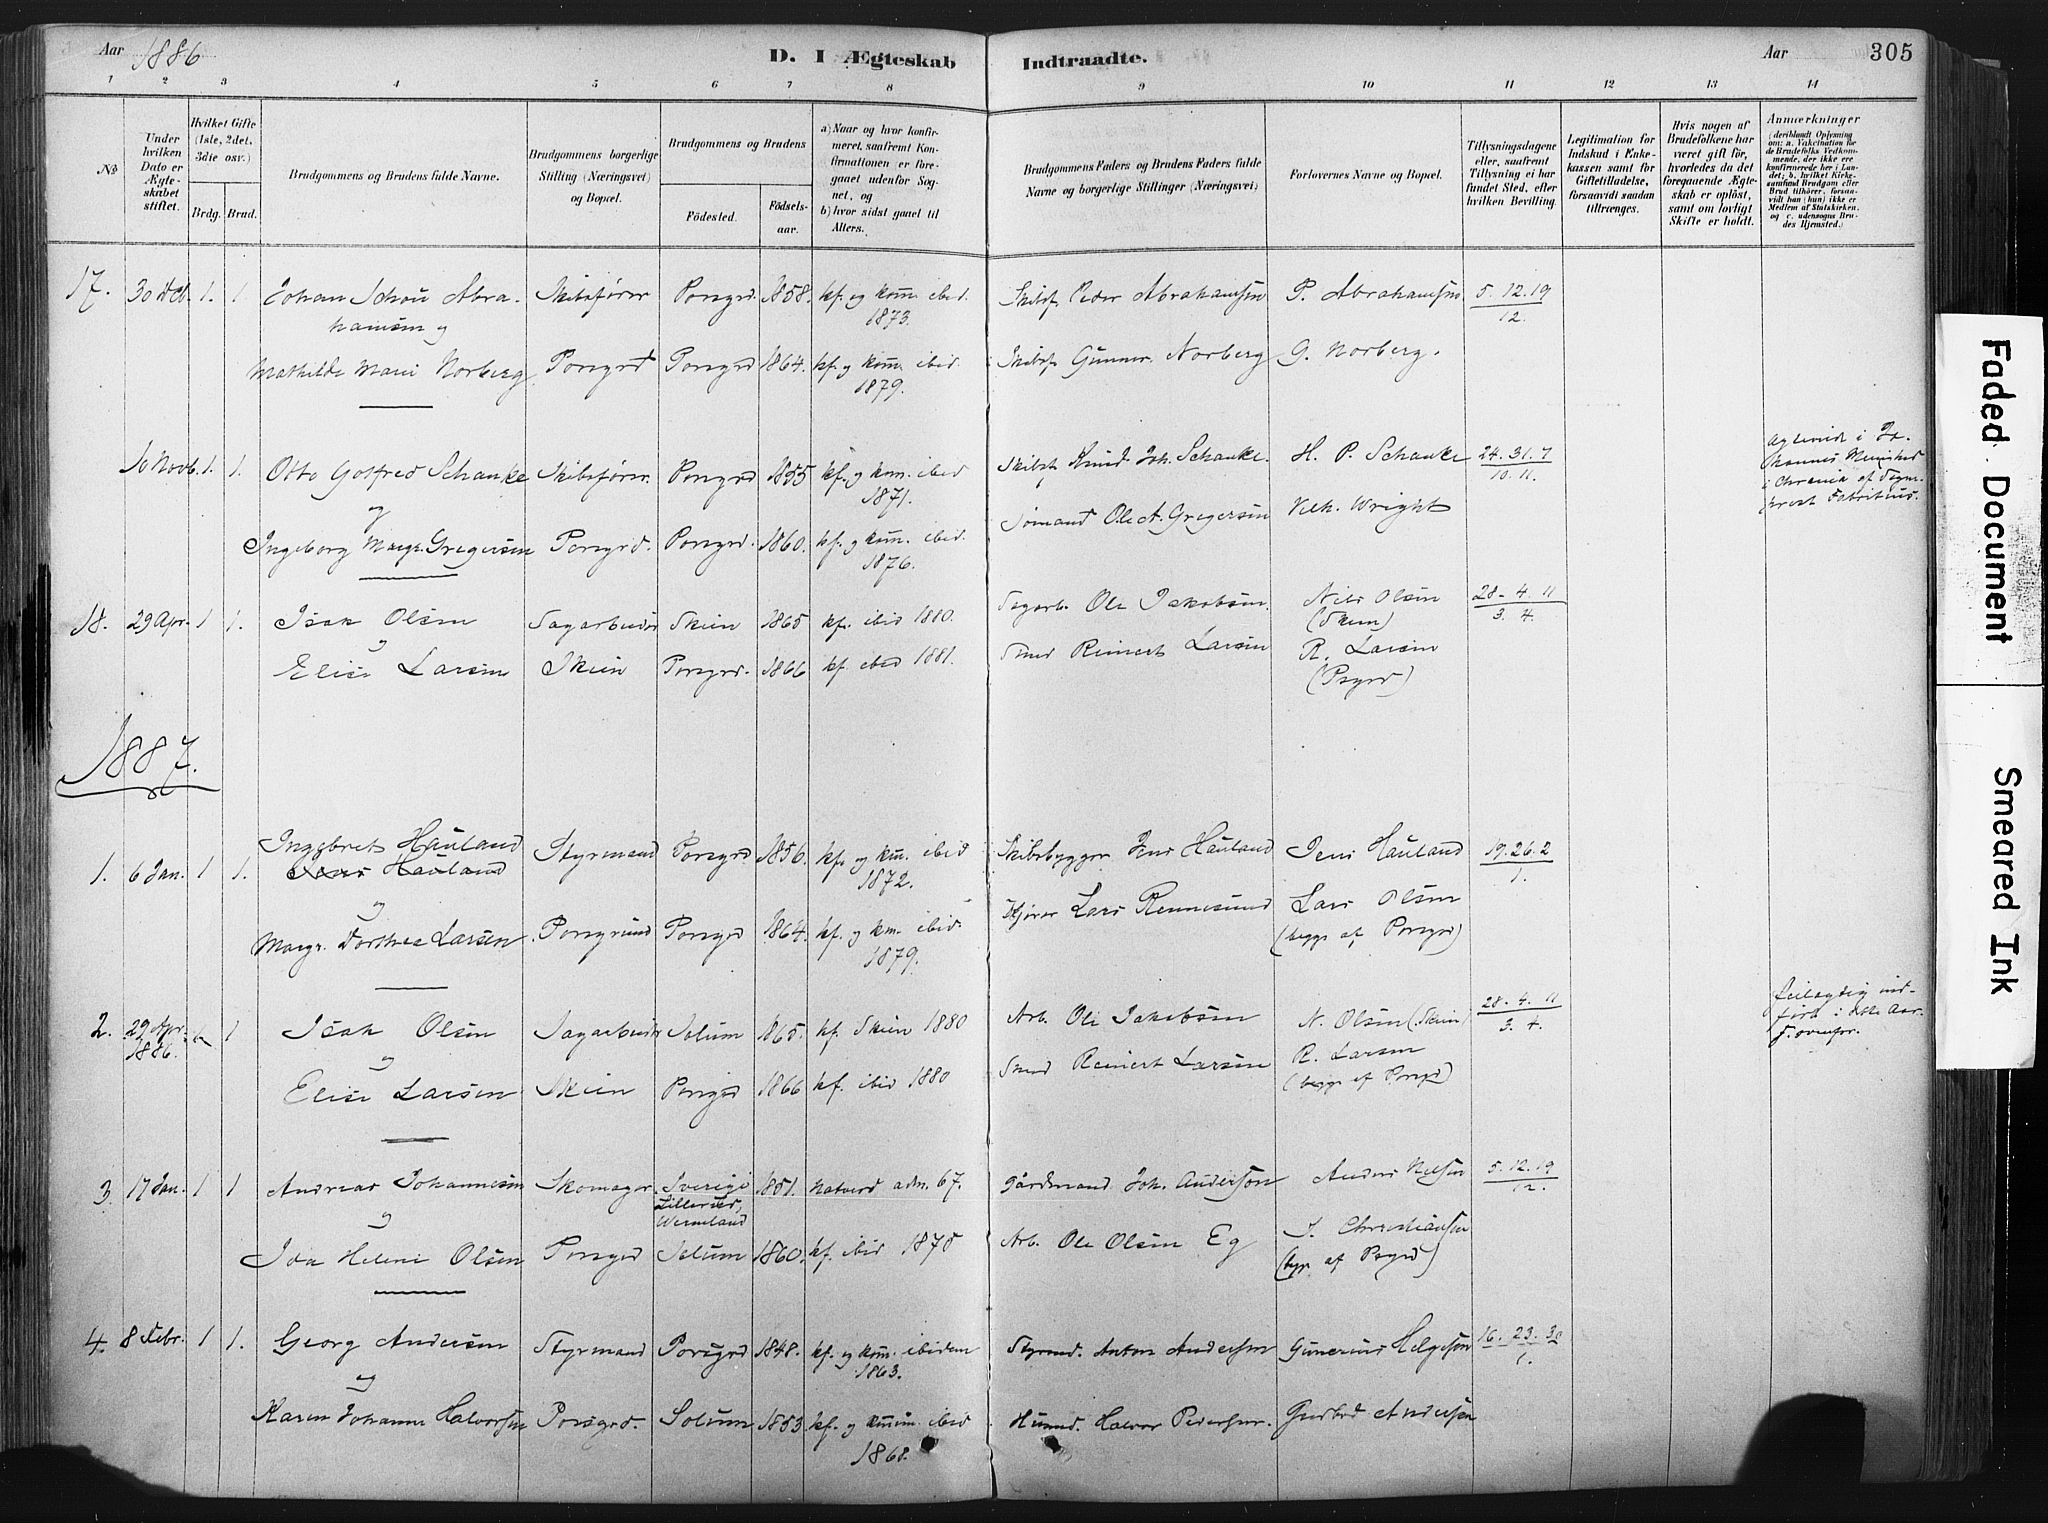 Aar 1886 D. I Ægteskab Indtraadte. Aar 305
1 2 3 4 5 6 7 8 9 10 11 12 13 14
№
Under hvilken Dato er Ægteskabet stiftet.
Hvilket Gifte (1ste, 2det, 3die osv.)
Brdg. Brud.
Brudgommens og Brudens fulde Navne.
Brudgommens borgerlige Stilling (Næringsvei) og Bopæl.
Brudgommens og Brudens
Fødested. Fødselsaar.
a) Naar og hvor konfirmeret, saafremt Konfirmationen er foregaaet udenfor Sognet, og
b) hvor sidst gaaet til Alters.
Brudgommens Faders og Brudens Faders fulde Navne og borgerlige Stillinger (Næringsvei)
Forlovernes Navne og Bopæl.
Tillysningsdagene eller, saafremt Tillysning ei har fundet Sted, efter hvilken Bevilling.
Legitimation for Indskud i Enkekassen samt for Giftetilladelse, forsaavidt saadan tiltrænges.
Hvis nogen af Brudefolkene har været gift før, hvorledes da det foregaaende Ægteskab er opløst, samt om lovligt Skifte er holdt.
Anmærkninger (deriblandt Oplysning om: a. Vakcination for de Brudefolks Vedkommende, der ikke ere konfirmerede her i Landet; b. hvilket Kirkesamfund Brudgom eller Brud tilhører, forsaavidt han (hun) ikke er Medlem af Statskirken, og c. udensogns Brudes Hjemsted.)
17. 30 Dcb. 1. 1 Johan Schou Abrahamsen og Skibsfører Porsgrd 1858. kf. og kom. ibid. 1873. Skibsf. Peder Abrahamsen P. Abrahamsen 5. 12. 19 / 12.
Mathilde Marie Norberg Porsgrd Porsgrd 1864. kf. og kom. ibid. 1879. Skibsf. Gunner Norberg G. Norberg.
10 Novb. 1. 1. Otto Gotfred Schanke Skibsfører Porsgrd 1855 kf. og kom. ibid 1871. Skibsf. Knud Joh. Schanke. H. P. Schanke 24. 31. 7 / 10. 11.
og
Ingeborg Margr. Gregersen Porsgrd. Porsgrd. 1860. kf. og kom. ibid. 1876. Sømand Ole A. Gregersen Vilh. Wright
18. 29 Apr. 1 1. Isak Olsen Sagarbeider Skien 1865 kf. ibid 1880. Sagarb. Ole Jakobsen Nils Olsen (Skien) 28. 4. 11 / 3. 4.
og
Elise Larsen Skien Porsgrd. 1866 kf. ibid 1881. Smed Reinert Larsen R. Larsen (Psgrd)
1887.
1. 6 Jan. 1 1. Inggbret Hauland Styrmand Porsgrd 1856. kf. og kom. ibid 1872. Skibsbygger Jens Hauland Jens Hauland 19. 26. 2 / 1.
Jens Hauland
og
Margr. Dorthea Larsen Porsgrund Porsgrd 1864. kf. og km. ibid. 1879. Lars Rennesund Lars Olsen (begge af Porsgrd)
2. 29 Apr. 1886. 1 1 Isak Olsen Sagarbeider Solum 1865. kf. Skien 1880 Arb. Ole Jakobsen N. Olsen (Skien) 28. 4. 11 / 3. 4. feilagtig indført i dette Aar. f. ovenfor.
og
Elise Larsen Skien Porsgrd 1866 kf. ibid 1880 Smed Reinert Larsen R. Larsen (begge af Porsgd)
3. 17 Jan. 1 1 Andreas Johannesen Skomager Sverige Wermeland 1851. Natverd adm. 67. Gårdmand Joh. Anderson Anders Nilsen 5. 12. 19 / 12.
og
Ida Helene Olsen Porsgrd Solum 1860. kf. ibid 1875 Arb. Ole Olsen Eg J. Christiansen (bgge af Psgrd)
4. 8 Febr. 1 1. Georg Andersen Styrmand Porsgrd 1848. kf. og kom. ibidem 1863. Styrmd. Anton Andersen Gunerius Helgesen 16. 23. 30 / 1.
og
Karen Johanne Halvorsen Porsgrd. Solum 1853. kf. og komm. ibid 1868. Husmd. Halvor Pedersen. Gudbrd Andersen
Faded Document
Smeared Ink